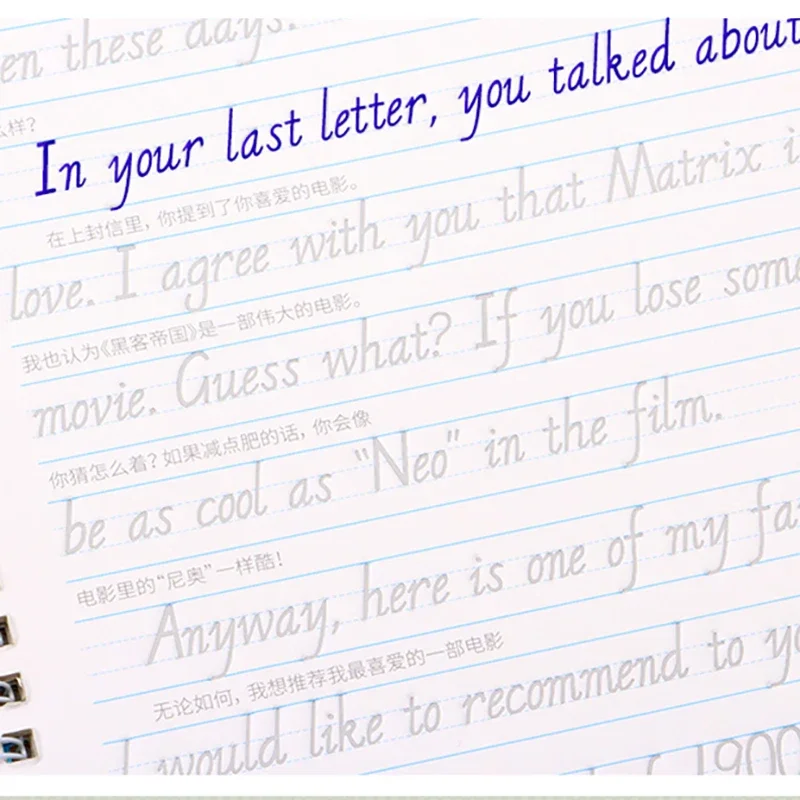 en these days.
么样?
In your last letter, you talked about
在上封信里，你提到了你喜爱的电影。
love. I agree with you that Matrix i
我也认为《黑客帝国》是一部伟大的电影。
movie. Guess what? If you lose some
你猜怎么着？如果减点肥的话，你会像
be as cool as "Neo" in the film.
电影里的“尼奥”一样酷！
Anyway, here is one of my fa
无论如何，我想推荐我最喜爱的一部电影
I would like to recommend to yo
1900